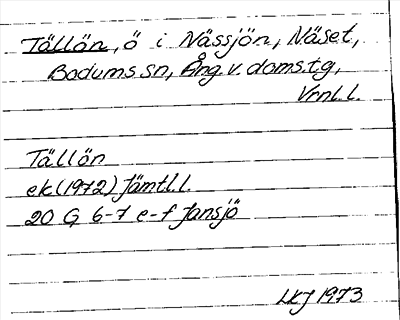 Tällön, ö i Nässjön, Näset,
Bodums sn, Ång. v. doms.tg,
Vrnl. l.
Tällön
ek (1972) Jämtl. l.
20 G 6-7 e-f Jansjö
LKJ 1973